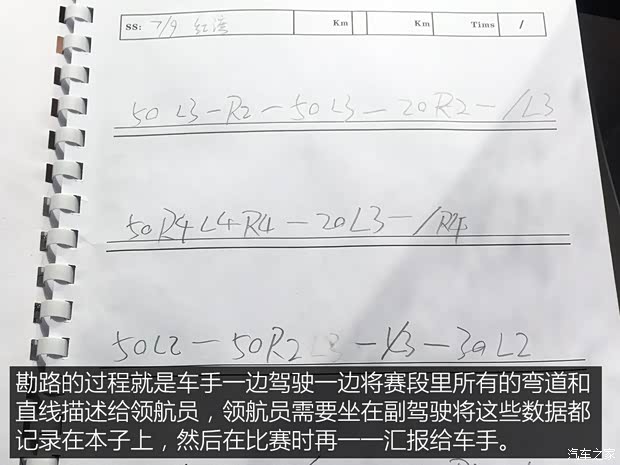 SS: 7/9 红滨 Km Km Tims 1
50 L3-R2-50L3-20R2-/L3
50R4L4R4-20L3-/R4
50L2-50R2 L3-/3-30L2
勘路的过程就是车手一边驾驶一边将赛段里所有的弯道和
直线描述给领航员，领航员需要坐在副驾驶将这些数据都
记录在本子上，然后在比赛时再一一汇报给车手。
汽车之家